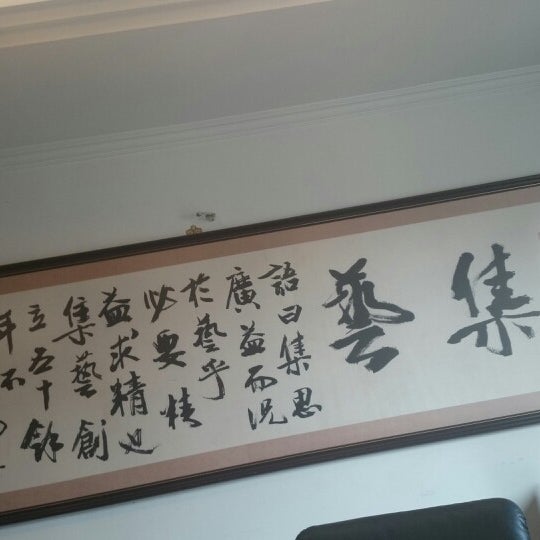 集藝
語曰集思
廣益而況
於藝乎
必要精
益求精也
集藝創
立五十餘
年不